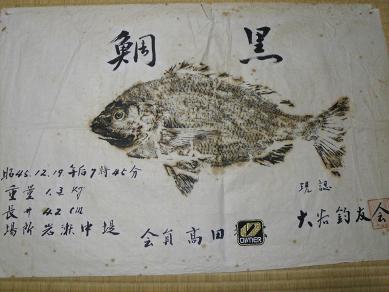 黒鯛
昭45.12.19 午后7時45分
重量 1.3 kg
長サ 42 cm
場所 岩瀬中堤
会員 高田
OWNER
現認
大岩釣友会